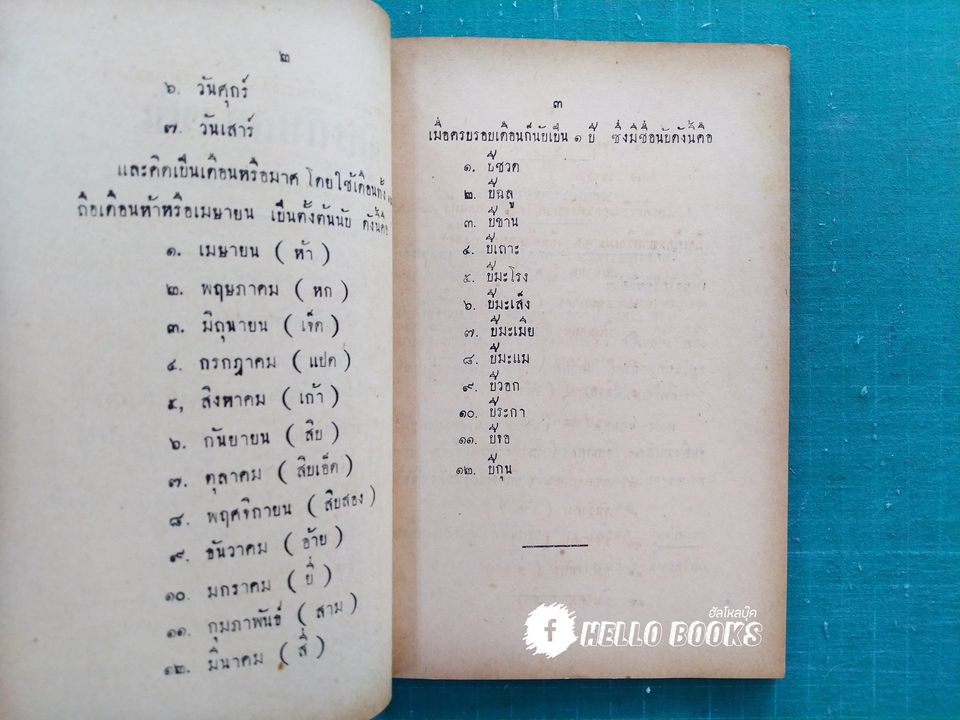 ๒
๖. วันศุกร์
๗. วันเสาร์
และคิดเป็นเดือนหรือมาศ โดยใช้เดือน
ถือเดือนห้าหรือเมษายน เป็นตั้งต้นนับ ดังนี้คือ
๑. เมษายน ( ห้า )
๒. พฤษภาคม ( หก )
๓. มิถุนายน ( เจ็ด )
๔. กรกฎาคม ( แปด )
๕, สิงหาคม ( เก้า )
๖. กันยายน ( สิบ )
๗. ตุลาคม ( สิบเอ็ด )
๘. พฤศจิกายน ( สิบสอง )
๙. ธันวาคม ( อ้าย )
๑๐. มกราคม ( ยี่ )
๑๑. กุมภาพันธ์ ( สาม )
๑๒. มีนาคม ( สี่ )
๓
เมื่อครบรอบเดือนก็นับเป็น ๑ ปี ซึ่งมีชื่อนับดังนี้คือ
๑. ปีชวด
๒. ปีฉลู
๓. ปีขาน
๔. ปีเถาะ
๕. ปีมะโรง
๖. ปีมะเส็ง
๗. ปีมะเมีย
๘. ปีมะแม
๙. ปีวอก
๑๐. ปีระกา
๑๑. ปีจอ
๑๒. ปีกุน
ฮัลโหลบุ๊ค
f HELLO BOOKS